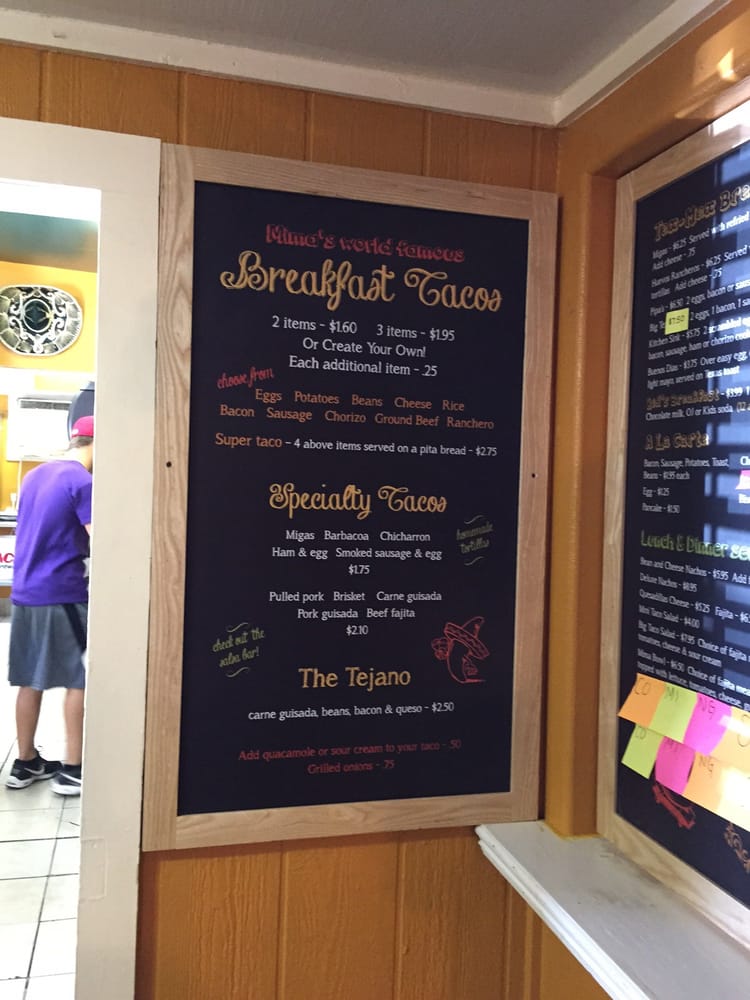 Mima's world famous
Breakfast Tacos
2 items - $1.60 3 items - $1.95
Or Create Your Own!
Each additional item - .25
choose from
Eggs Potatoes Beans Cheese Rice
Bacon Sausage Chorizo Ground Beef Ranchero
Super taco - 4 above items served on a pita bread - $2.75
Specialty Tacos
Migas Barbacoa Chicharron
Ham & egg Smoked sausage & egg
$1.75
homemade
tortillas
Pulled pork Brisket Carne guisada
Pork guisada Beef fajita
$2.10
check out the
salsa bar!
The Tejano
carne guisada, beans, bacon & queso - $2.50
Add quacamole or sour cream to your taco - .50
Grilled onions - .75
Tex-Mex
Migas - $6.25 Served with refried
Add cheese - .75
Huevos Rancheros - $6.25 Served
tortillas Add cheese - .75
Pipa's - $6.50 2 eggs, bacon or
Big $7.50 2 eggs, 1 bacon, 1
Kitchen Sink - $5.75 2 scrambled
bacon, sausage, ham or chorizo
Buenos Dias - $3.75 Over easy egg,
light mayo, served on Texas toast
Breakfast - $3.99
Chocolate milk, OJ or Kids soda
A La Carte
Bacon, Sausage, Potatoes, Toast,
Beans - $1.95 each
Egg - $1.25
Pancake - $1.50
Lunch & Dinner
Bean and Cheese Nachos - $5.95 Add
Deluxe Nachos - $8.95
Quesadillas Cheese - $5.25 Fajita
Mini Taco Salad - $4.00
Big Taco Salad - $7.95 Choice of fajita
tomatoes, cheese & sour cream
Mima Bowl - $6.50 Choice of fajita
topped with lettuce, tomatoes, cheese,
CO MI NG
CO MI NG